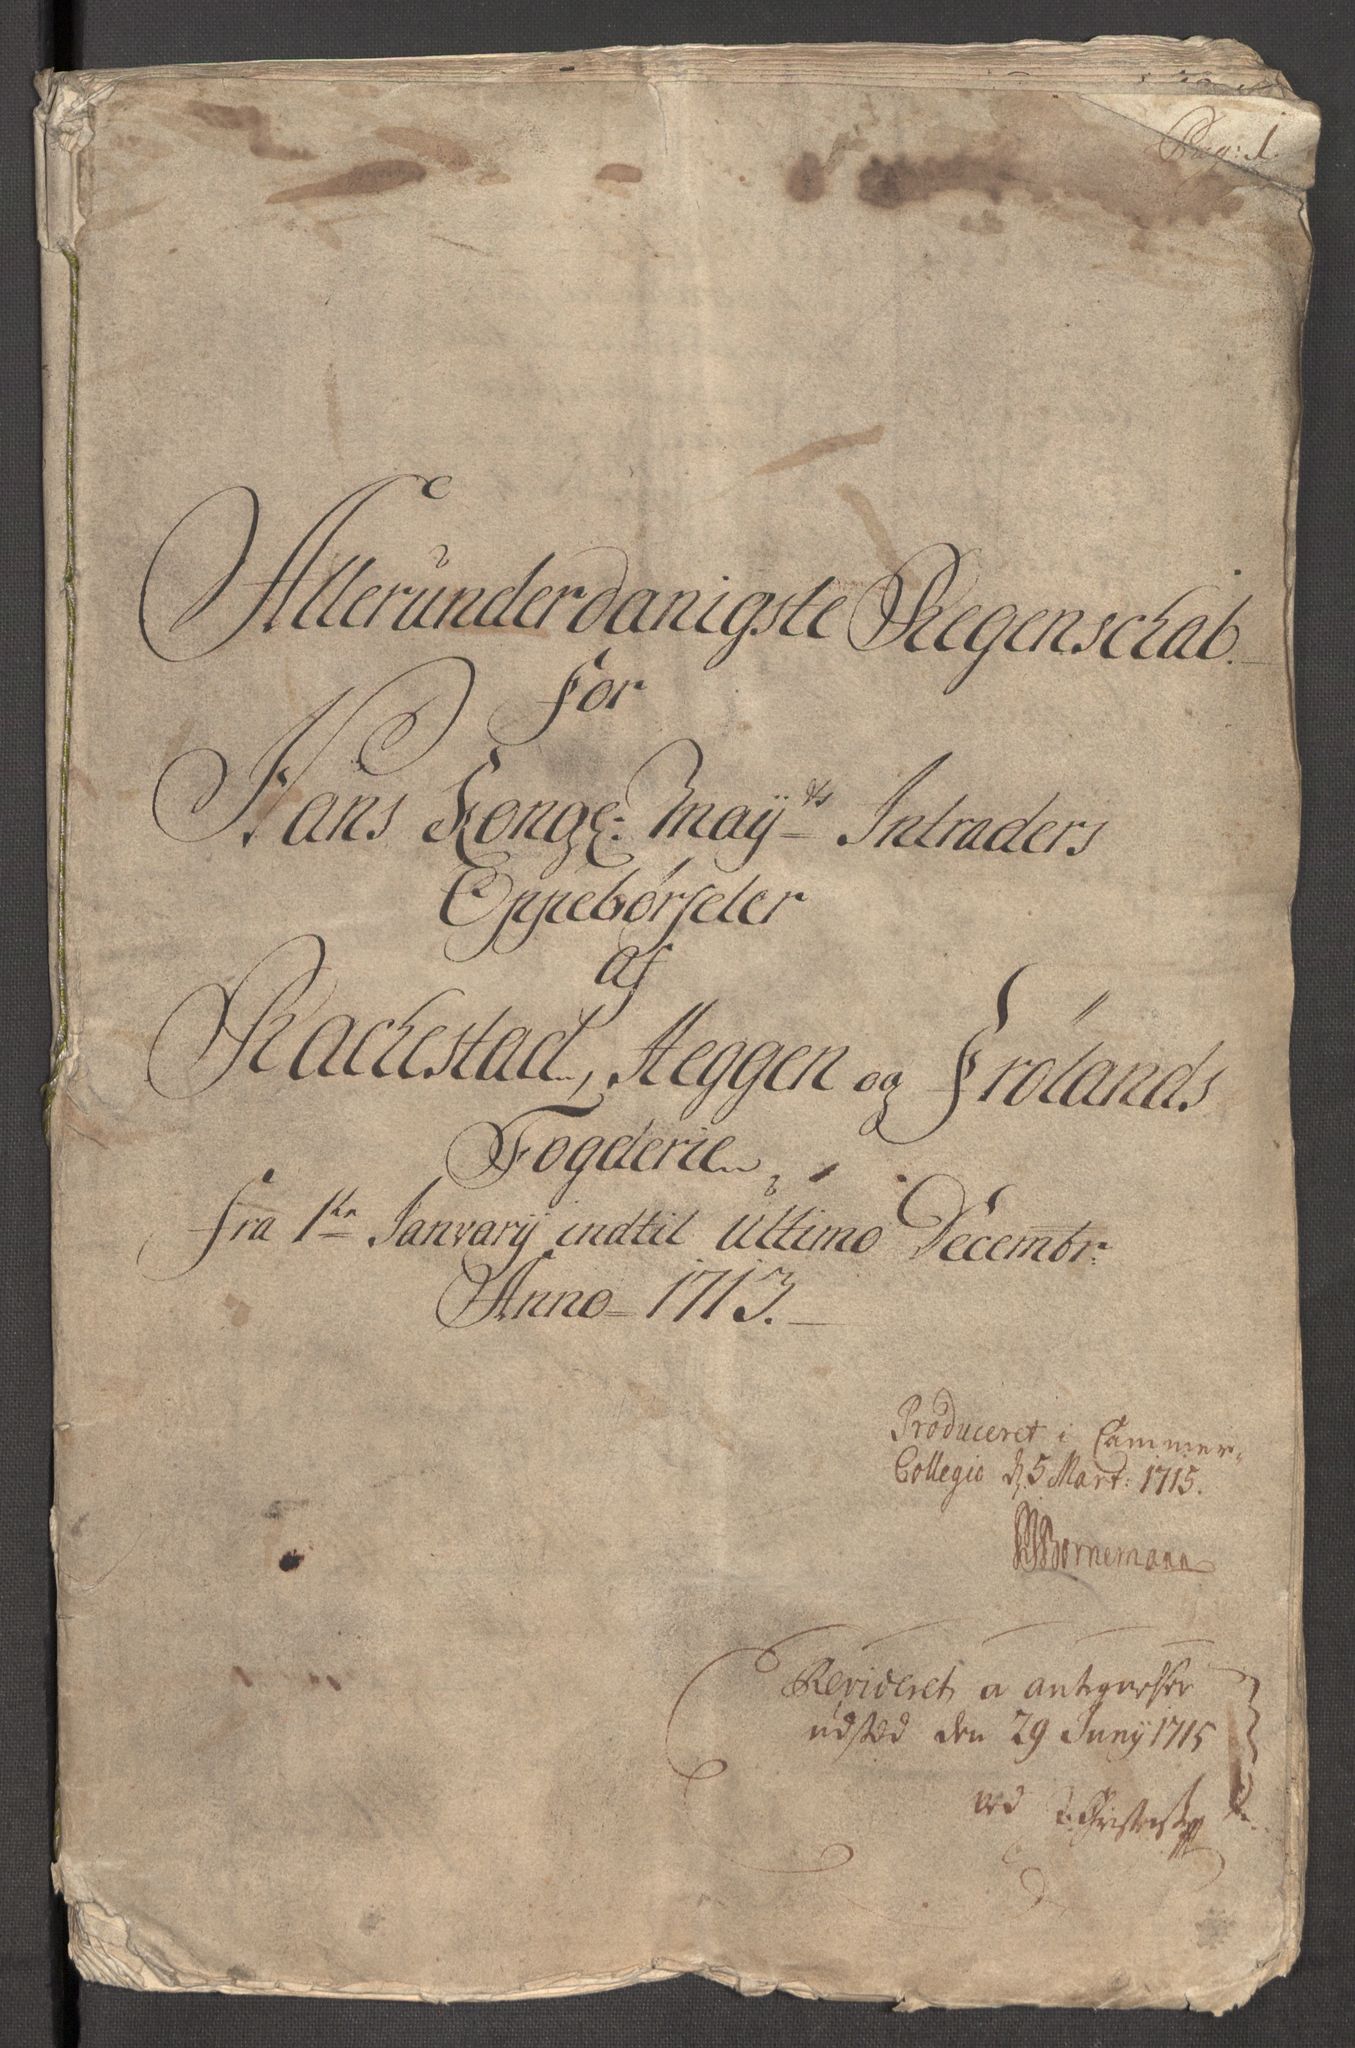 Pag: 1.
Allerunderdanigste Regenschab
for
Hans Kongl: Mayts Intraders
Oppebørseler
af
Rackestad, Heggen og Frølands
Fogderie
fra 1te Janvary indtil ultimo Decembr:
Anno 1713.
Produceret i Cammer-
Collegio d. 5 Mart: 1715.
Bornemann
Revideret a antegnelser
udstæd den 29 Juny 1715
ved